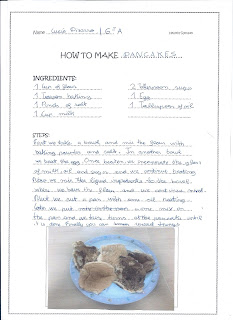 Name: Lucía 6º A
HOW TO MAKE PANCAKES
INGREDIENTS:
1 Cup of flour
2 Tablespoon sugar
1 Teaspoon baking
1 Egg
1 Pinch of salt
1 Tablespoon of oil
1 Cup milk
STEPS:
First we take a bowl and mix the flour with
baking powder and salt. In another bowl
we beat the egg. Once beaten we incorporate the glass
of milk, oil and sugar and we continue beating.
Now we mix the liquid ingredients to the bowl
where we have the flour and we mix
Next we put a pan with some oil heating.
Later we put some mix in
the pan and we take turns at the pancakes until
it is done. Finally you can